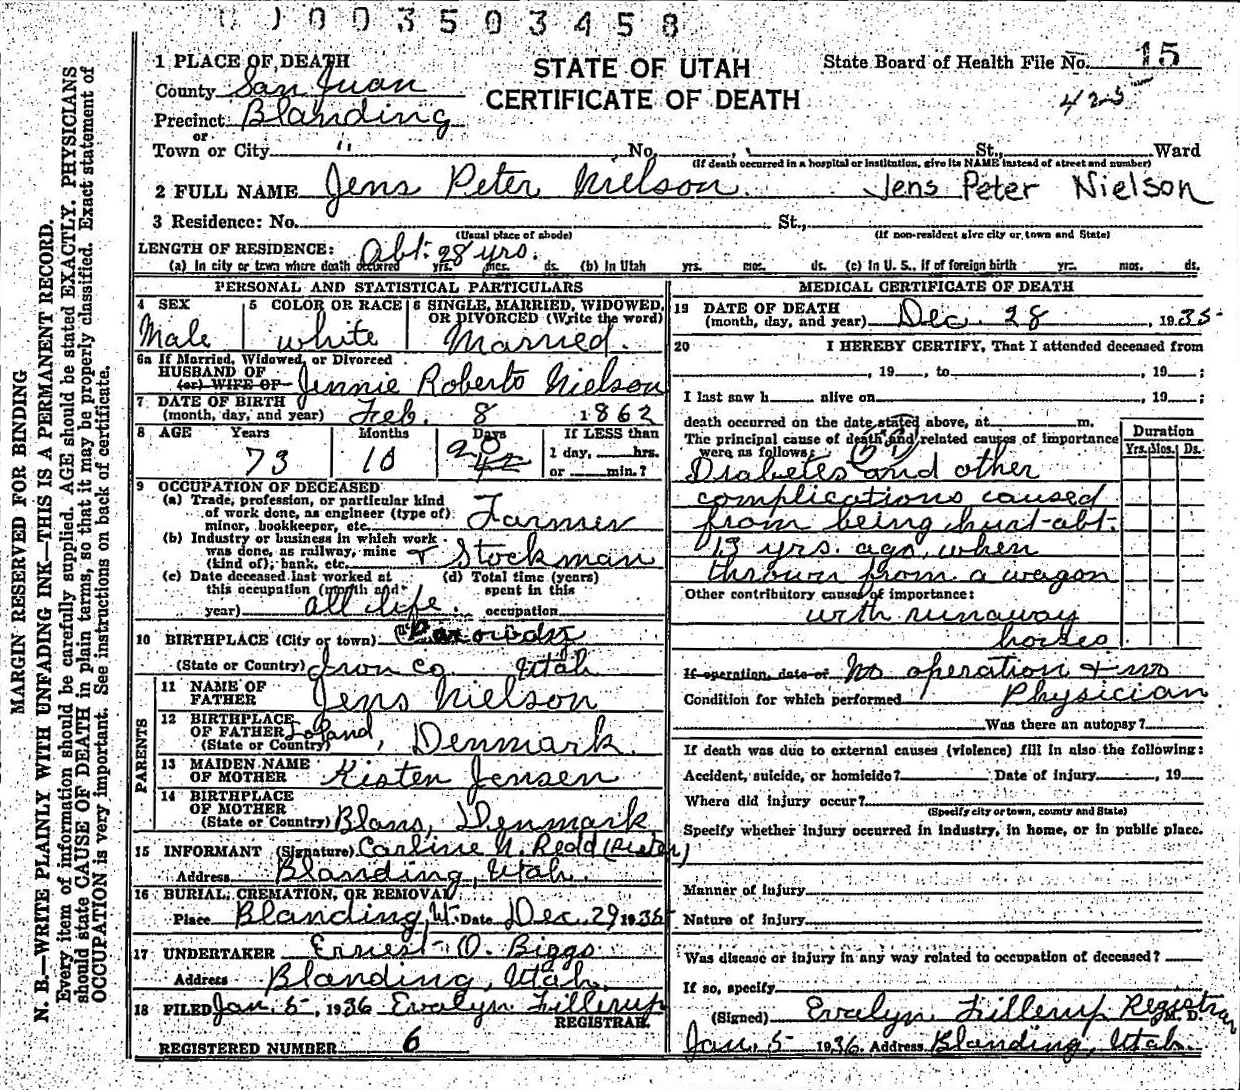 0003503458
1 PLACE OF DEATH
STATE OF UTAH
CERTIFICATE OF DEATH
State Board of Health File No. 15
425
County San Juan
Precinct Blanding
or
Town or City " No. St., Ward
(If death occurred in a hospital or institution, give its NAME instead of street and number)
2 FULL NAME Jens Peter Nielson. Jens Peter Nielson
3 Residence: No. St.,
(Usual place of abode) (If non-resident give city or town and State)
LENGTH OF RESIDENCE: Abt. 28 yrs.
(a) In city or town where death occurred yrs. mos. ds. (b) In Utah yrs. mos. ds. (c) In U. S., if of foreign birth yrs. mos. ds.
PERSONAL AND STATISTICAL PARTICULARS
4 SEX 5 COLOR OR RACE 6 SINGLE, MARRIED, WIDOWED, OR DIVORCED (Write the word)
Male white Married.
6a If Married, Widowed, or Divorced
HUSBAND OF
(or) WIFE OF Jennie Roberts Nielson
7 DATE OF BIRTH
(month, day, and year) Feb. 8 1862
8 AGE Years Months Days If LESS than
1 day, hrs.
73 10 20 or min.?
9 OCCUPATION OF DECEASED
(a) Trade, profession, or particular kind
of work done, as engineer (type of)
miner, bookkeeper, etc. Farmer
(b) Industry or business in which work
was done, as railway, mine
(kind of); bank, etc. & Stockman
(c) Date deceased last worked at
this occupation (month and
year) all life.
(d) Total time (years)
spent in this
occupation
10 BIRTHPLACE (City or town)
(State or Country) Iron Co. Utah
PARENTS
11 NAME OF
FATHER Jens Nielson
12 BIRTHPLACE
OF FATHER
(State or Country) Loland, Denmark.
13 MAIDEN NAME
OF MOTHER Kisten Jensen
14 BIRTHPLACE
OF MOTHER
(State or Country) Blans, Denmark
15 INFORMANT (Signature) Carline N. Redd (Sister)
Address Blanding, Utah.
16 BURIAL, CREMATION, OR REMOVAL
Place Blanding, Ut. Date Dec. 29 1935
17 UNDERTAKER Ernest O. Biggs
Address Blanding, Utah.
18 FILED Jan. 5, 1936 Evalyn Fillerup
REGISTRAR.
REGISTERED NUMBER 6
MEDICAL CERTIFICATE OF DEATH
19 DATE OF DEATH
(month, day, and year) Dec. 28, 1935
20 I HEREBY CERTIFY, That I attended deceased from
, 19 , to , 19 ;
I last saw h alive on , 19 ;
death occurred on the date stated above, at m.
The principal cause of death and related causes of importance
were as follows:
Duration
Yrs. Mos. Ds.
Diabetes and other
complications caused
from being hurt abt.
13 yrs. ago, when
thrown from a wagon
Other contributory causes of importance:
with runaway
horses.
If operation, date of No operation & no
Condition for which performed Physician
Was there an autopsy?
If death was due to external causes (violence) fill in also the following:
Accident, suicide, or homicide? Date of injury , 19
Where did injury occur?
(Specify city or town, county and State)
Specify whether injury occurred in industry, in home, or in public place.
Manner of injury
Nature of injury
Was disease or injury in any way related to occupation of deceased?
If so, specify
(Signed) Evalyn Fillerup Registrar M. D.
Jan. 5 1936. Address Blanding, Utah.
MARGIN RESERVED FOR BINDING
N. B.—WRITE PLAINLY WITH UNFADING INK—THIS IS A PERMANENT RECORD.
Every item of information should be carefully supplied. AGE should be stated EXACTLY. PHYSICIANS
should state CAUSE OF DEATH in plain terms, so that it may be properly classified. Exact statement of
OCCUPATION is very important. See instructions on back of certificate.